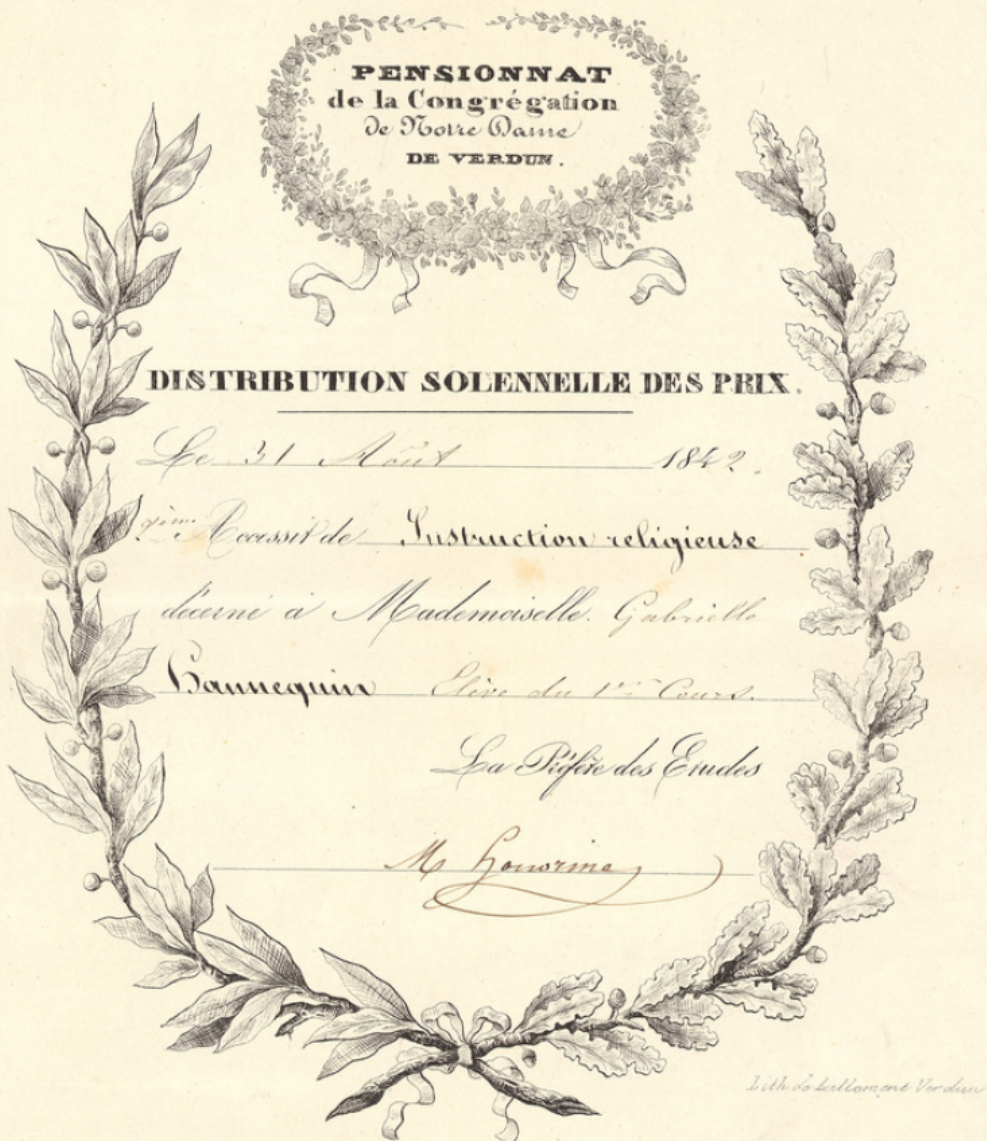 PENSIONNAT
de la Congrégation
de Notre Dame
DE VERDUN.
DISTRIBUTION SOLENNELLE DES PRIX.
Le 31 Août 1842.
Accessit de Instruction religieuse
décerné à Mademoiselle. Gabrielle
Hannequin Elève du 1er Cours.
La Préfète des Etudes
M Honorine
Lith. de Lallemant Verdun